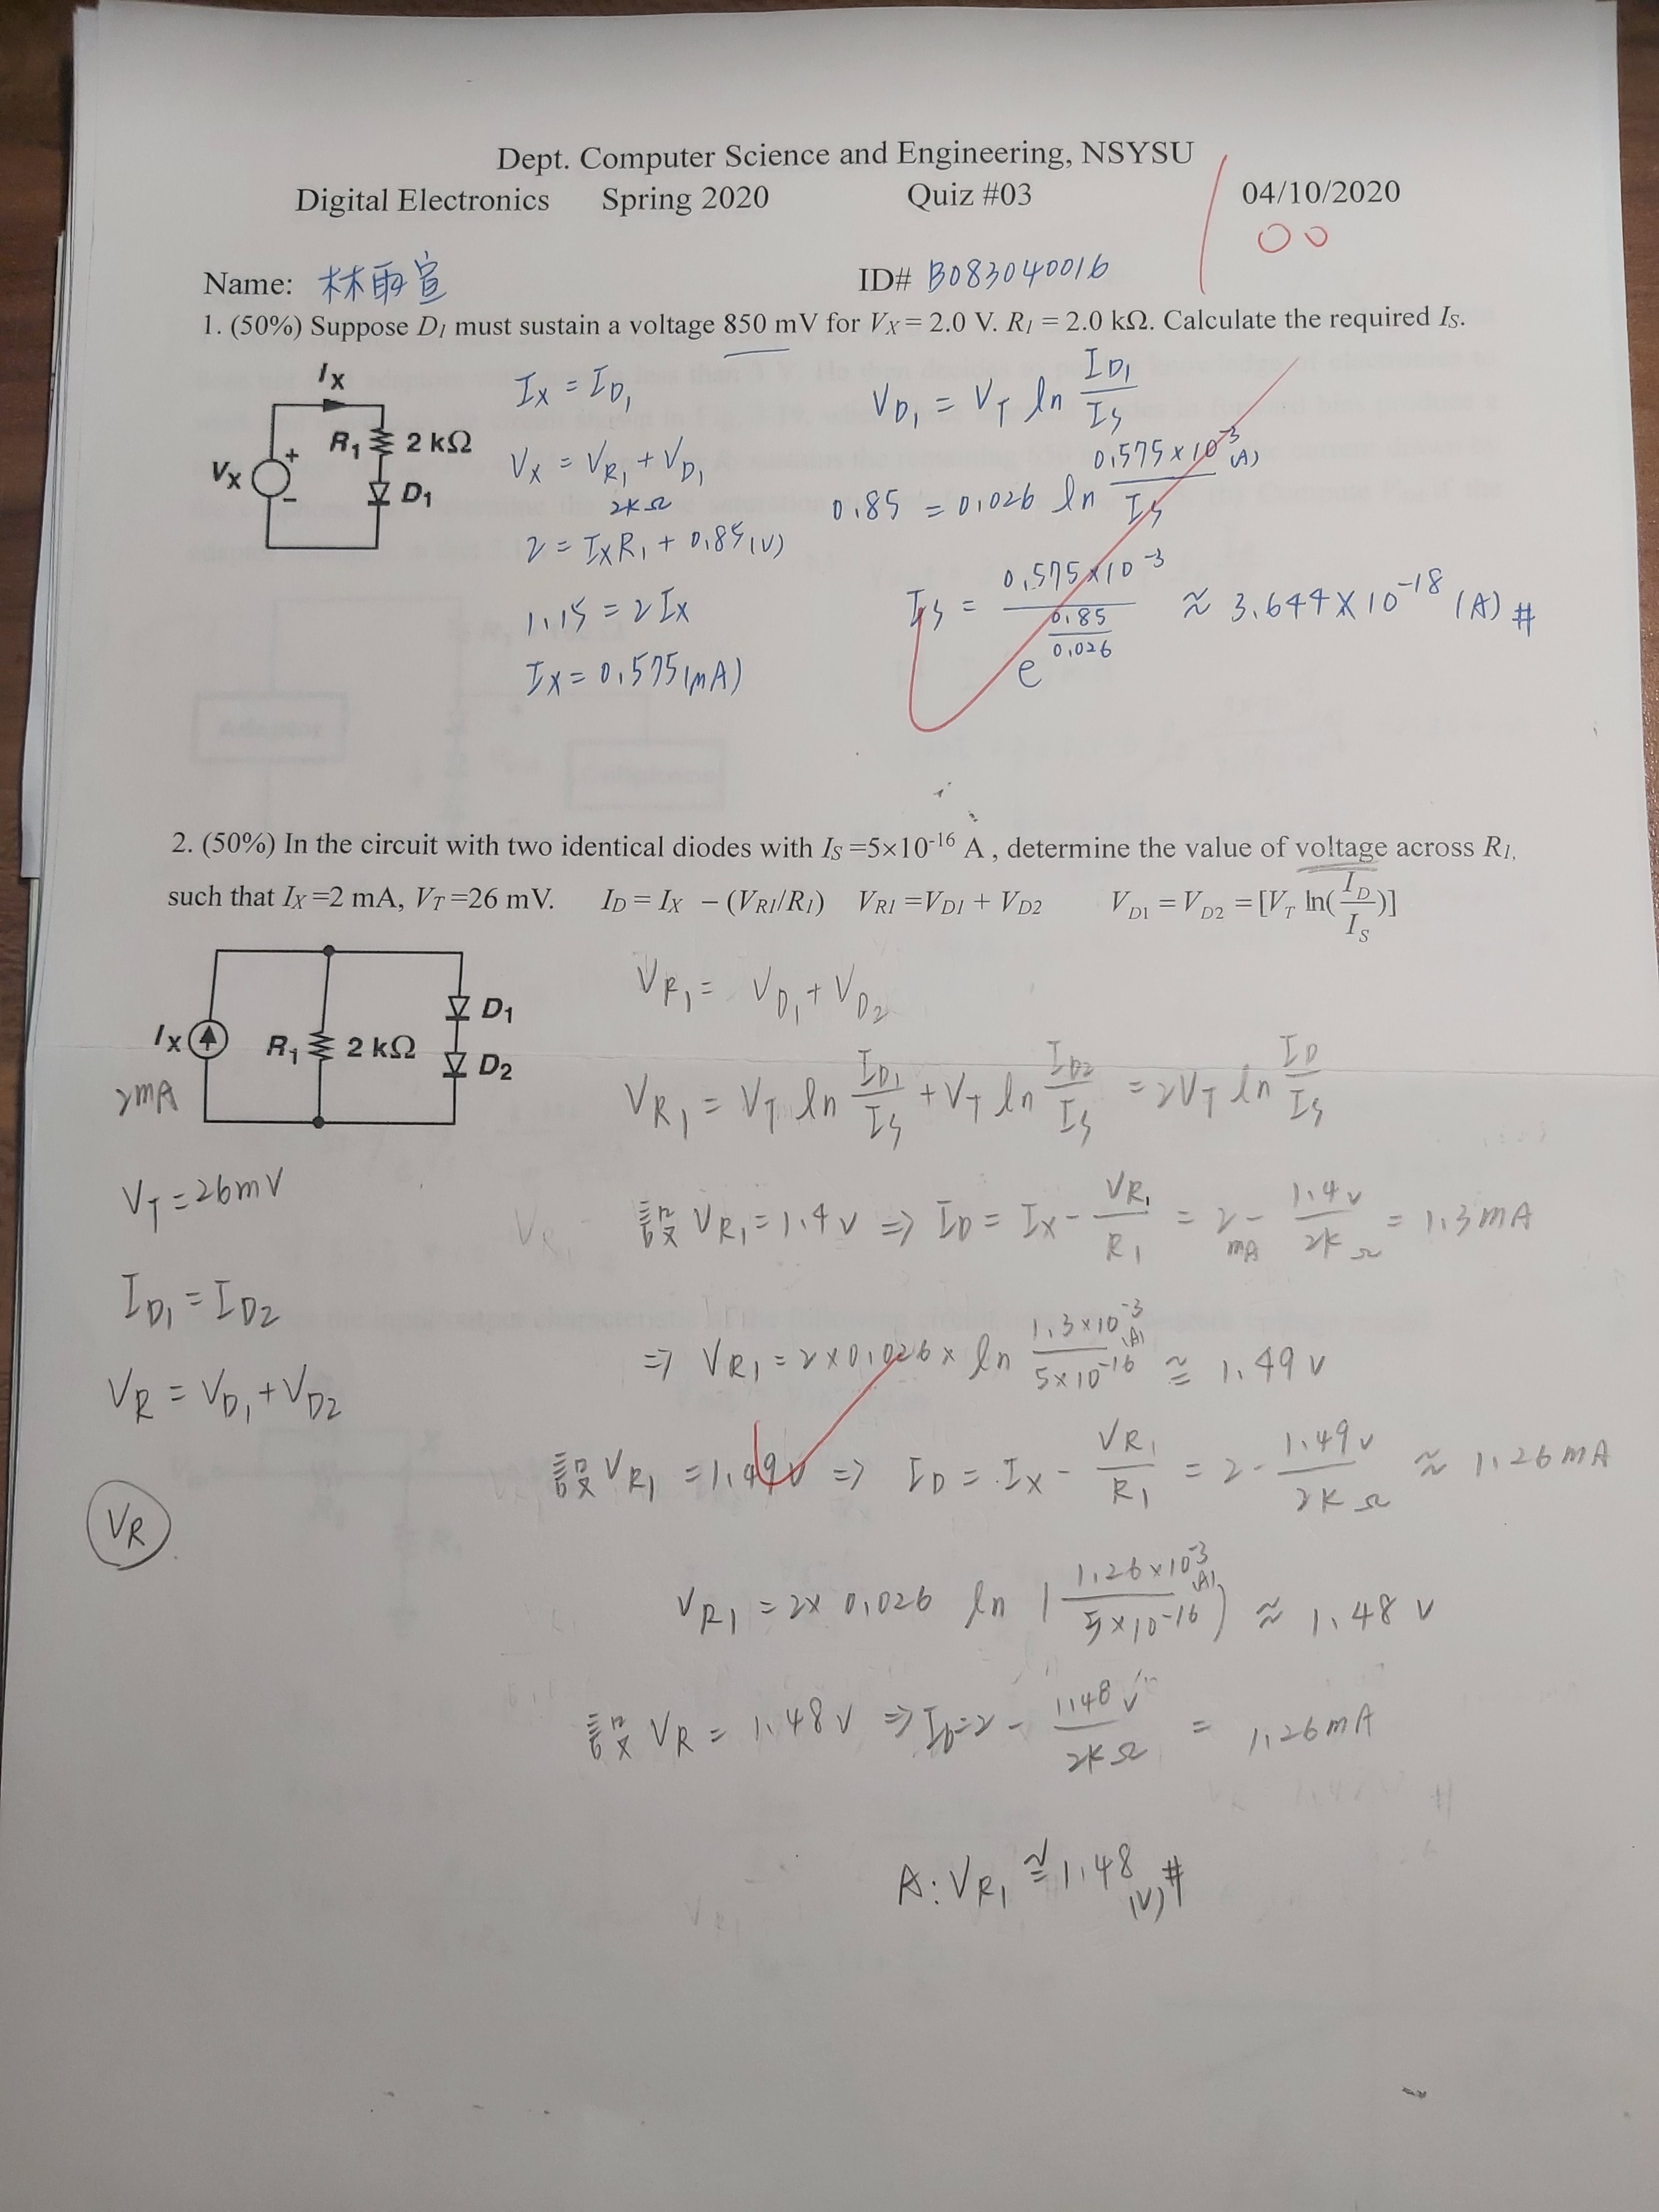 Dept. Computer Science and Engineering, NSYSU
Digital Electronics Spring 2020 Quiz #03 04/10/2020
100
Name: 林雨宣 ID# B083040016
1. (50%) Suppose D₁ must sustain a voltage 850 mV for Vx = 2.0 V. R₁ = 2.0 kΩ. Calculate the required Is.
Ix
R₁ 2 kΩ
Vx + −
D₁
Ix = ID₁
Vx = VR₁ + VD₁
2kΩ
2 = IxR₁ + 0.85(V)
1.15 = 2Ix
Ix = 0.575(mA)
VD₁ = VT ln ID₁/Is
0.85 = 0.026 ln 0.575×10⁻³(A)/Is
Is = 0.575×10⁻³/e^(0.85/0.026) ≈ 3.644×10⁻¹⁸ (A) #
2. (50%) In the circuit with two identical diodes with Is =5×10⁻¹⁶ A , determine the value of voltage across R₁,
such that Ix =2 mA, VT =26 mV. ID = Ix − (VR1/R1) VR1 =VD1 + VD2 VD1 = VD2 = [VT ln(ID/IS)]
Ix R₁ 2 kΩ D₁
D₂
2mA
VT = 26mV
ID₁ = ID2
VR = VD₁ + VD2
VR
VR₁ = VD₁ + VD2
VR₁ = VT ln ID₁/Is + VT ln ID2/Is = 2VT ln ID/Is
設 VR₁ = 1.4 V ⇒ ID = Ix − VR₁/R₁ = 2mA − 1.4V/2kΩ = 1.3mA
⇒ VR₁ = 2×0.026× ln 1.3×10⁻³(A)/5×10⁻¹⁶ ≅ 1.49 V
設 VR₁ = 1.49V ⇒ ID = Ix − VR₁/R₁ = 2 − 1.49V/2kΩ ≈ 1.26mA
VR₁ = 2× 0.026 ln (1.26×10⁻³(A)/5×10⁻¹⁶) ≈ 1.48 V
設 VR = 1.48V ⇒ ID=2 − 1.48V/2kΩ = 1.26mA
A: VR₁ ≅ 1.48 (V) #